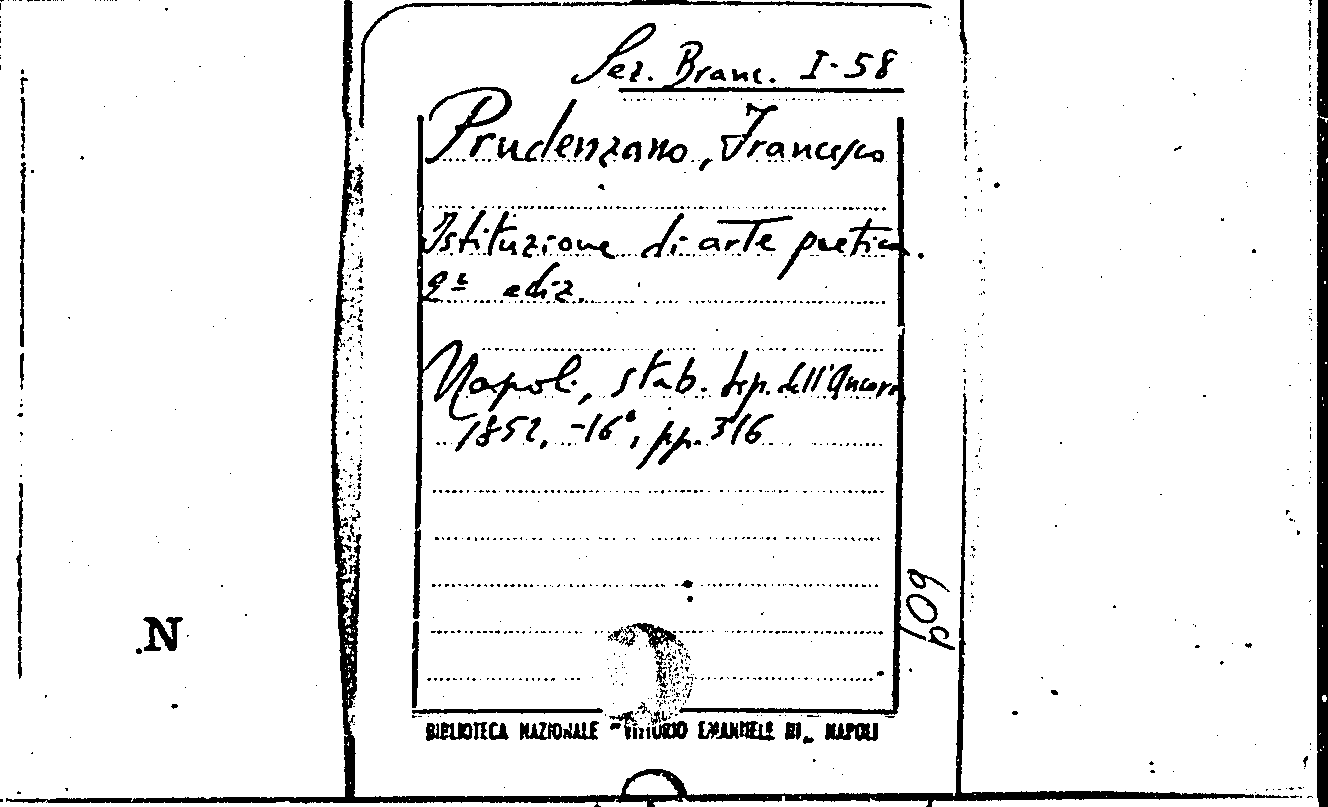 Sez. Branc. I-58
Prudenzano, Francesco
Istituzione di arte poetica.
2ª ediz.
Napoli, stab. tip. dell'Ancora
1852, -16°, pp. 316
609
N
BIBLIOTECA NAZIONALE "VITTORIO EMANUELE III" NAPOLI